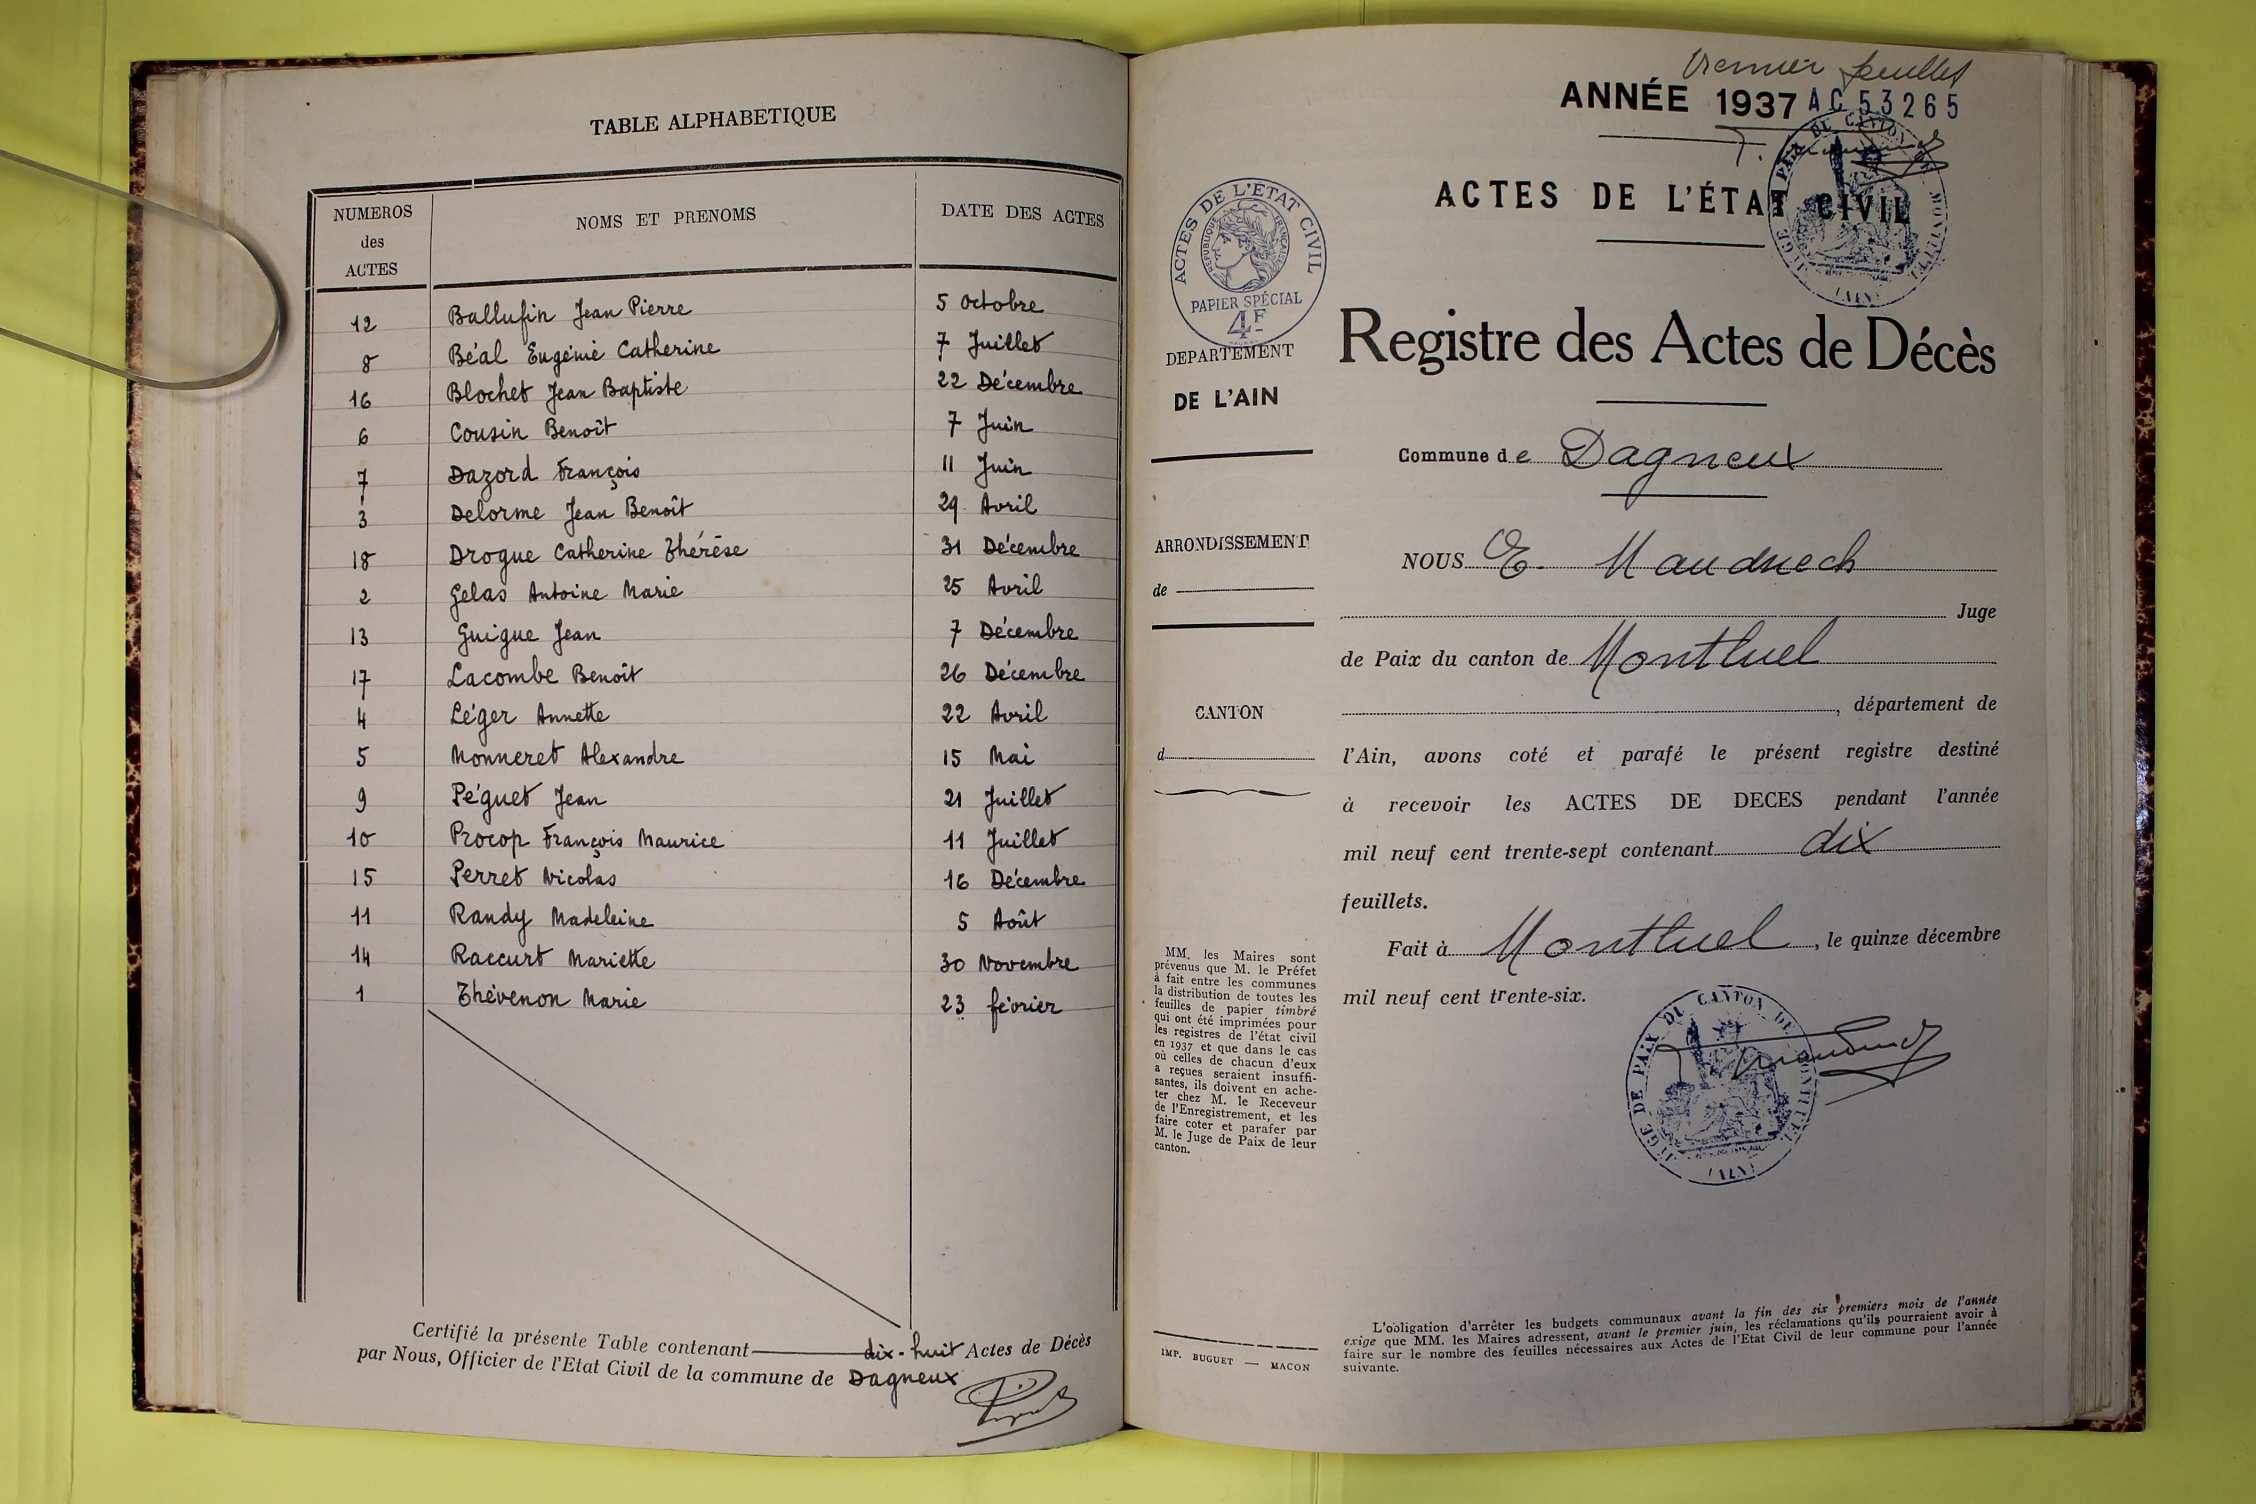 TABLE ALPHABETIQUE
NUMEROS des ACTES NOMS ET PRENOMS DATE DES ACTES
12 Ballufin Jean Pierre 5 Octobre
8 Béal Eugénie Catherine 7 Juillet
16 Blochet Jean Baptiste 22 Décembre
6 Cousin Benoît 7 Juin
7 Dazord François 11 Juin
3 Delorme Jean Benoît 29 Avril
18 Drogue Catherine Thérèse 31 Décembre
2 Gelas Antoine Marie 25 Avril
13 Guigue Jean 7 Décembre
17 Lacombe Benoît 26 Décembre
4 Léger Annette 22 Avril
5 Monneret Alexandre 15 Mai
9 Péguet Jean 21 Juillet
10 Procop François Maurice 11 Juillet
15 Perret Nicolas 16 Décembre
11 Randy Madeleine 5 Août
14 Raccurt Mariette 30 Novembre
1 Thévenon Marie 23 février
Certifié la présente Table contenant dix-huit Actes de Décès
par Nous, Officier de l'Etat Civil de la commune de Dagneux
premier feuillet
ANNÉE 1937 AC 53265
ACTES DE L'ÉTAT CIVIL
JUGE DE PAIX DU CANTON DE MONTLUEL
(AIN)
ACTES DE L'ETAT CIVIL
REPUBLIQUE FRANÇAISE
PAPIER SPÉCIAL
4F
DEPARTEMENT
DE L'AIN
ARRONDISSEMENT
de
CANTON
d
MM. les Maires sont
prévenus que M. le Préfet
à fait entre les communes
la distribution de toutes les
feuilles de papier timbré
qui ont été imprimées pour
les registres de l'état civil
en 1937 et que dans le cas
où celles de chacun d'eux
a reçues seraient insuffi-
santes, ils doivent en ache-
ter chez M. le Receveur
de l'Enregistrement, et les
faire coter et parafer par
M. le Juge de Paix de leur
canton.
IMP. BUGUET — MACON
Registre des Actes de Décès
Commune de Dagneux
NOUS E.
Juge
de Paix du canton de Montluel
, département de
l'Ain, avons coté et parafé le présent registre destiné
à recevoir les ACTES DE DECES pendant l'année
mil neuf cent trente-sept contenant dix
feuillets.
Fait à Montluel, le quinze décembre
mil neuf cent trente-six.
JUGE DE PAIX DU CANTON DE MONTLUEL
(AIN)
L'obligation d'arrêter les budgets communaux avant la fin des six premiers mois de l'année
exige que MM. les Maires adressent, avant le premier juin, les réclamations qu'ils pourraient avoir à
faire sur le nombre des feuilles nécessaires aux Actes de l'Etat Civil de leur commune pour l'année
suivante.